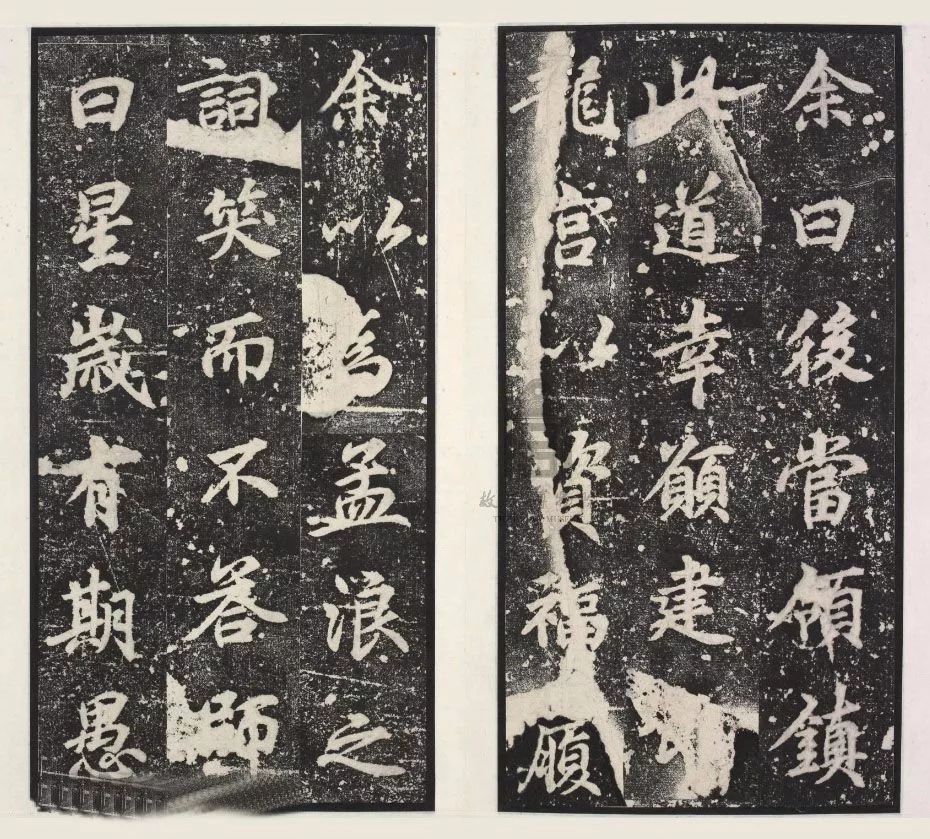 余曰後當領鎮
此道幸願建
龍宮以資福願
余以為孟浪之
詞笑而不答師
曰星歲有期愚